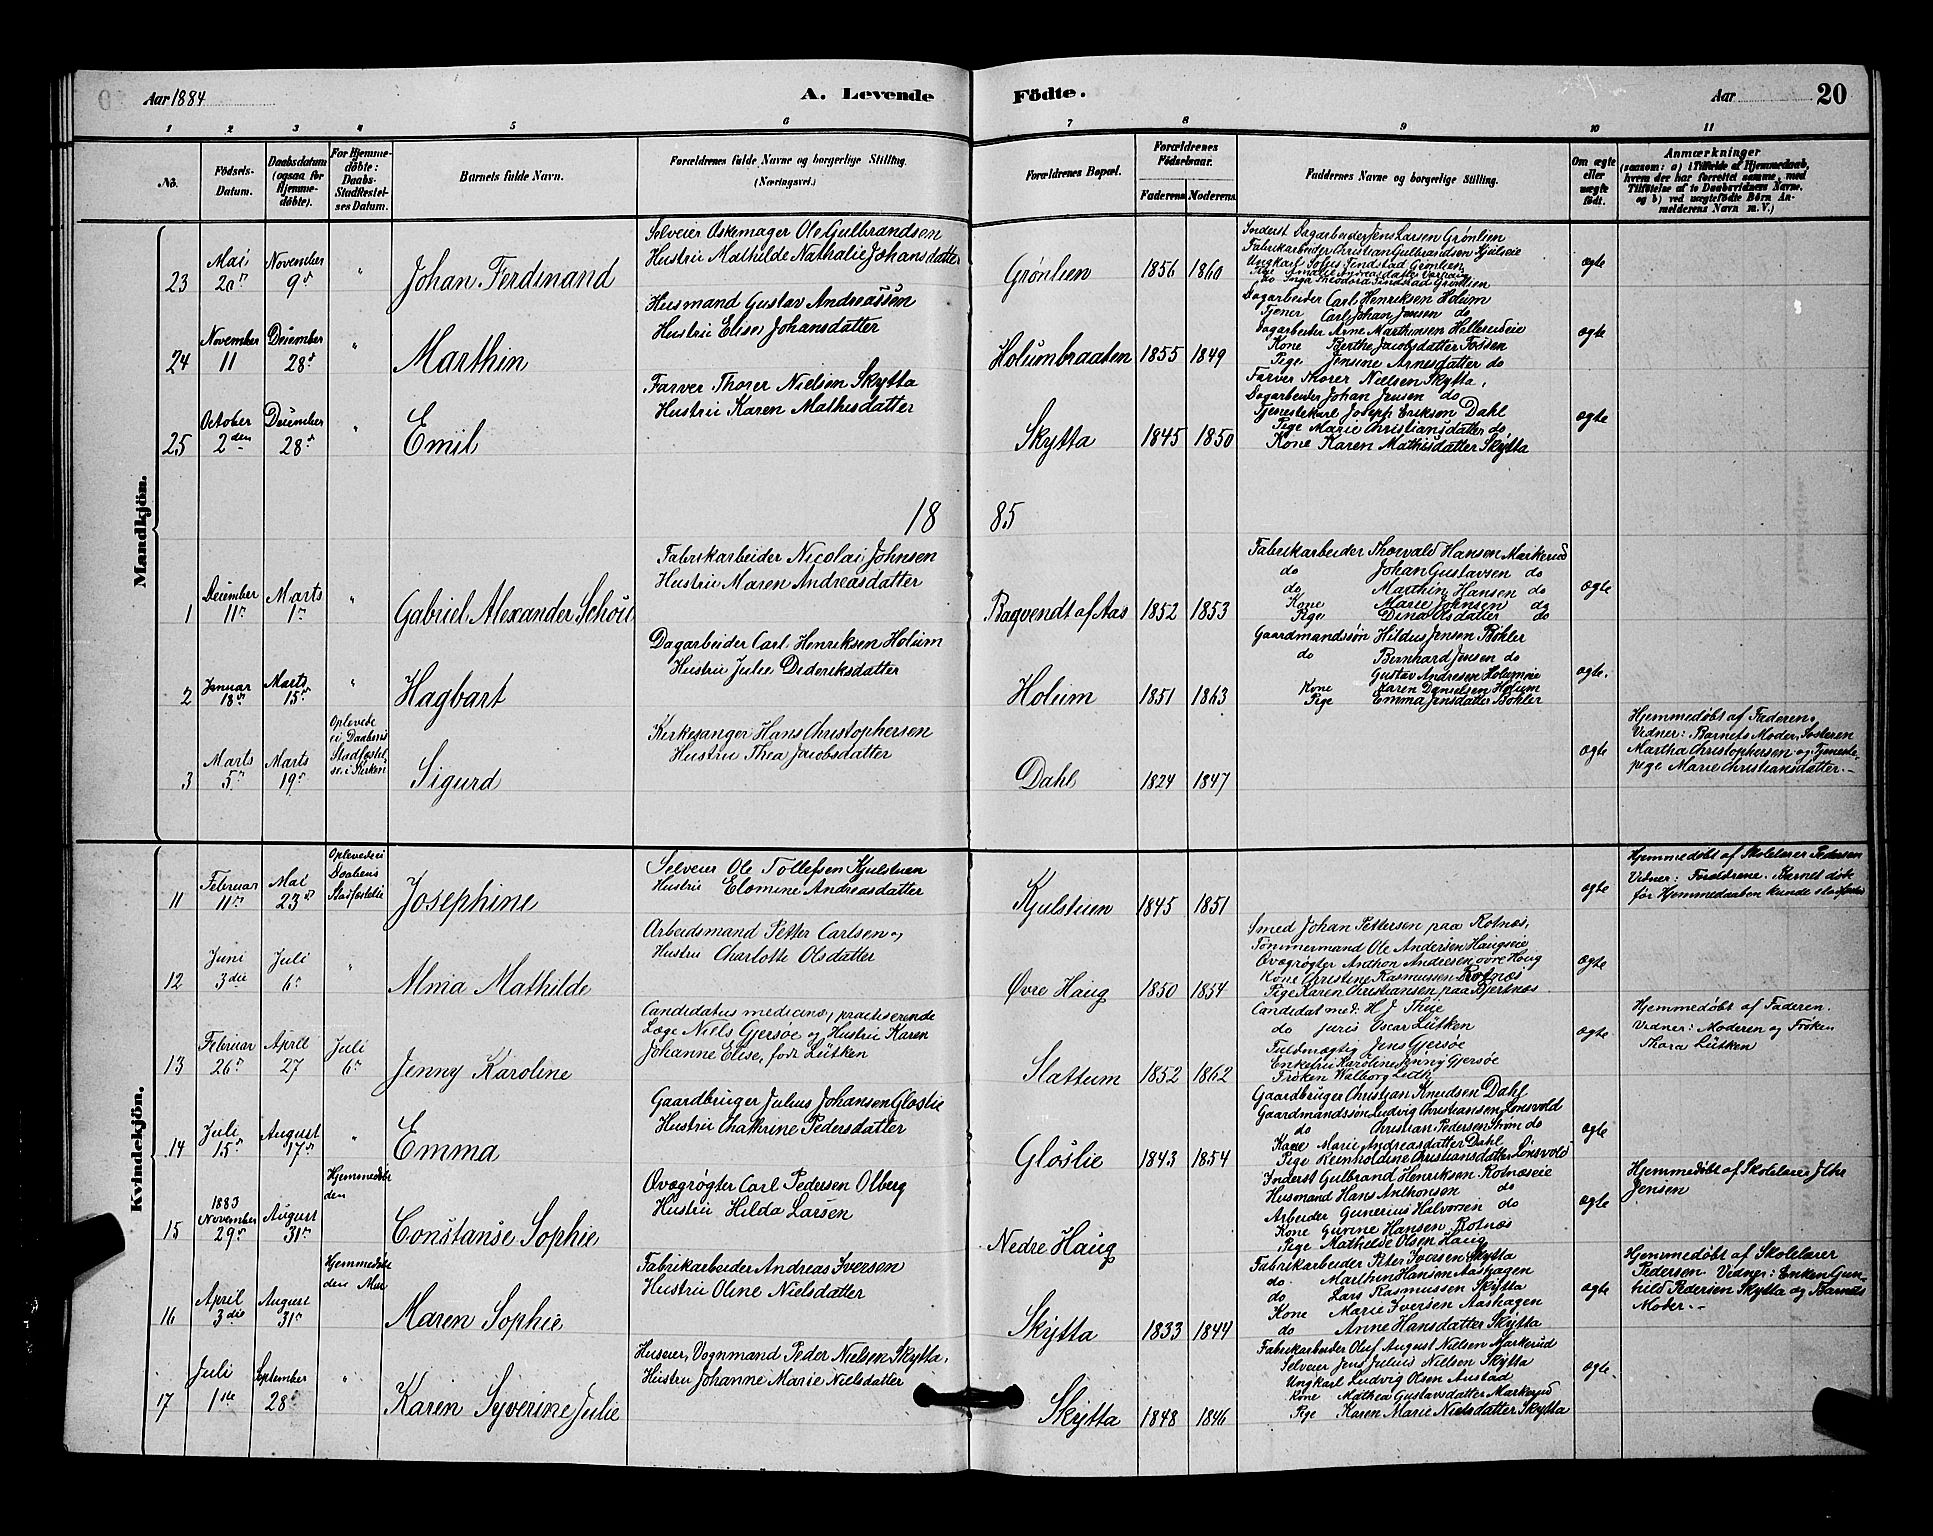 Aar 1884
A. Levende
Födte.
Aar
20
1 2 3 4 5 6 7 8 9 10 11
No.
Födsels-Datum.
Daabsdatum (ogsaa for Hjemme-döbte).
For Hjemme-döbte: Daabs-Stadfæstel-ses Datum.
Barnets fulde Navn.
Forældrenes fulde Navne og borgerlige Stilling. (Næringsvei.)
Forældrenes Bopæl.
Forældrenes Födselsaar.
Faderens Moderens
Faddernes Navne og borgerlige Stilling.
Om ægte eller uægte födt.
Anmærkninger
(saasom: a) i Tilfælde af Hjemmedaab,
hvem der har forrettet samme, med
Tilföielse af to Daabsvidners Navne,
og b) ved uægtefödte Börn An-
melderens Navn m. V.)
Mandkjön.
23
Mai 20de
November 9de
"
Johan Ferdinand
Selveier Oskemager Ole Gulbrandsen
Hustru Mathilde Nathalie Johansdatter
Grønlien
1856 1860
Inderst Dagarbeider Jens Larsen Grønlien
Fabrikarbeider Christian Gulbrandsen Kjulseie
Ungkarl Sofus Tindstad Grønlien
Pige Amalie Andreasdatter
do Inga Theodora Tindstad Grønlien
ægte
24
November 11
December 28de
"
Marthin
Husmand Gustav Andreassen
Hustru Elise Johansdatter
Holumbraaten
1855 1849
Dagarbeider Carl Henriksen Holum
Tjener Carl Johan Jensen do
Dagarbeider Arne Marthinsen Hellerudeie
Kone Berthe Jacobsdatter Fossen
Pige Jensine Arnesdatter do
ægte
25
October 2den
December 28de
"
Emil
Farver Thorer Nielsen Skytta
Hustru Karen Mathisdatter
Skytta
1845 1850
Farver Thorer Nielsen Skytta,
Dagarbeider Johan Jensen do
Tjenestekarl Joseph Eriksen Dahl
Pige Marie Christiansdatter do
Kone Karen Mathisdatter Skytta
ægte
18 85
1
December 11te
Marts 1ste
"
Gabriel Alexander Schou
Fabrikarbeider Nicolai Johnsen
Hustru Maren Andreasdatter
Bagvendt af Aas
1852 1853
Fabrikarbeider Thorvald Hansen Markerud
do Johan Gustavsen do
do Marthin Hansen do
Kone Marie Johnsen do
Pige Dina Olsdatter do
ægte
2
Januar 18de
Marts 15de
"
Hagbart
Dagarbeider Carl Henriksen Holum
Hustru Julie Dideriksdatter
Holum
1851 1863
Gaardmandssøn Hildus Jensen Bøhler
do Bernhard Jensen do
Gustav Andresen Holumeie
Kone Karen Danielsen Holum
Pige Emma Jensdatter Bøhler
ægte.
3
Marts 5te
Marts 19de
Oplevede ei Daabens Stadfæstel-se i Kirken
Sigurd
Kirkesanger Hans Christophersen
Hustru Thea Jacobsdatter
Dahl
1824 1847
ægte
Hjemmedøbt af Faderen.
Vidner: Barnets Moder, Søsteren
Martha Christophersen og Tjeneste-
pige Marie Christiansdatter.
Kvindekjön.
11
Februar 11te
Mai 23de
Oplevede ei Daabens Stadfæstelse
Josephine
Selveier Ole Tollefsen Kjulstuen
Hustru Elomine Andreasdatter
Kjulstuen
1845 1851
ægte
Hjemmedøbt af Skolelærer Pedersen
Vidner: Forældrene. Barnet døde
før Hjemmedaaben kunde stadfæstes
12
Juni 3die
Juli 6te
"
Alma Mathilde
Arbeidsmand Petter Carlsen og
Hustru Charlotte Olsdatter
Øvre Haug
1850 1854
Smed Johan Pettersen paa Rotnæs,
Tømmermand Ole Andersen Haugseie
Qvægrøgter Anthon Andresen øvre Haug
Kone Christine Rasmussen Rotnæs
Pige Karen Christiansen paa Bjertnæs
ægte
13
Februar 26de
April 27
Juli 6te
Jenny Karoline
Candidatus medicinæ, practiserende
Læge Niels Gjersøe og Hustru Karen
Johanne Elise, født Lütken
Slattum
1852 1862
Candidat med: H J Thue
do juris Oscar Lütken
Fuldmægtig Jens Gjersøe
Enkefru Karoline Jenny Gjersøe
Frøken Walborg
ægte
Hjemmedøbt af Faderen.
Vidner: Moderen og Frøken
Thora Lütken
14
Juli 15de
August 17de
"
Emma
Gaardbruger Julius Johansen Gloslie
Hustru Chathrine Pedersdatter
Gloslie
1843 1854
Gaardbruger Christian Knudsen Dahl
Gaardmandssøn Ludvig Christiansen Lonsvold
do Christian Pedersen do
Kone Marie Andreasdatter Dahl
Pige Reinholdine Christiansdatter Lonsvold
ægte
15
1883 November 29de
August 31te
Hjemmedøbt den
Constanse Sophie
Qvægrøgter Carl Pedersen Olberg
Hustru Hilda Larsen
Nedre Haug
Inderst Gulbrand Henriksen Rotnæseie
Husmand Hans Anthonsen do
Arbeider Gunerius Halvorsen do
Kone Gurine Hansen Rotnæs
Pige Mathilde Olsen Haug
ægte
Hjemmedøbt af Skolelærer
Jensen
16
April 3die
August 31te
Hjemmedøbt den Mai
Maren Sophie
Fabrikarbeider Andreas Iversen
Hustru Oline Nielsdatter
Skytta
1833 1844
Fabrikarbeider Peter Iversen Skytta
do Marthin Hansen Aashagen
do Lars Rasmussen Skytta
Kone Marie Iversen Aashagen
do Anne Hansdatter Skytta
ægte
Hjemmedøbt af Skolelærer
Pedersen. Vidner: Enken Gun-
hild Pedersen Skytta og Barnets
Moder.
17
Juli 1ste
September 28de
"
Karen Syverine Julie
Huseier, Vognmand Peder Nielsen Skytta,
Hustru Johanne Marie Nielsdatter
Skytta
1848 1846
Fabrikarbeider Oluf August Nielsen Markerud
Selveier Jens Julius Nielsen Skytta
Ungkarl Ludvig Olsen Austad
Kone Mathea Gustavsdatter Markerud
Pige Karen Marie Nielsdatter Skytta
ægte.